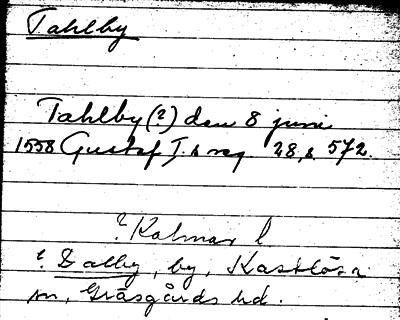 Tahlby
Tahlby (?) den 8 juni
1558 Gustaf I:s reg. 28, s 572.
? Kalmar l
? Dalby, by, Kastlösa
sn, Gräsgårds hd.